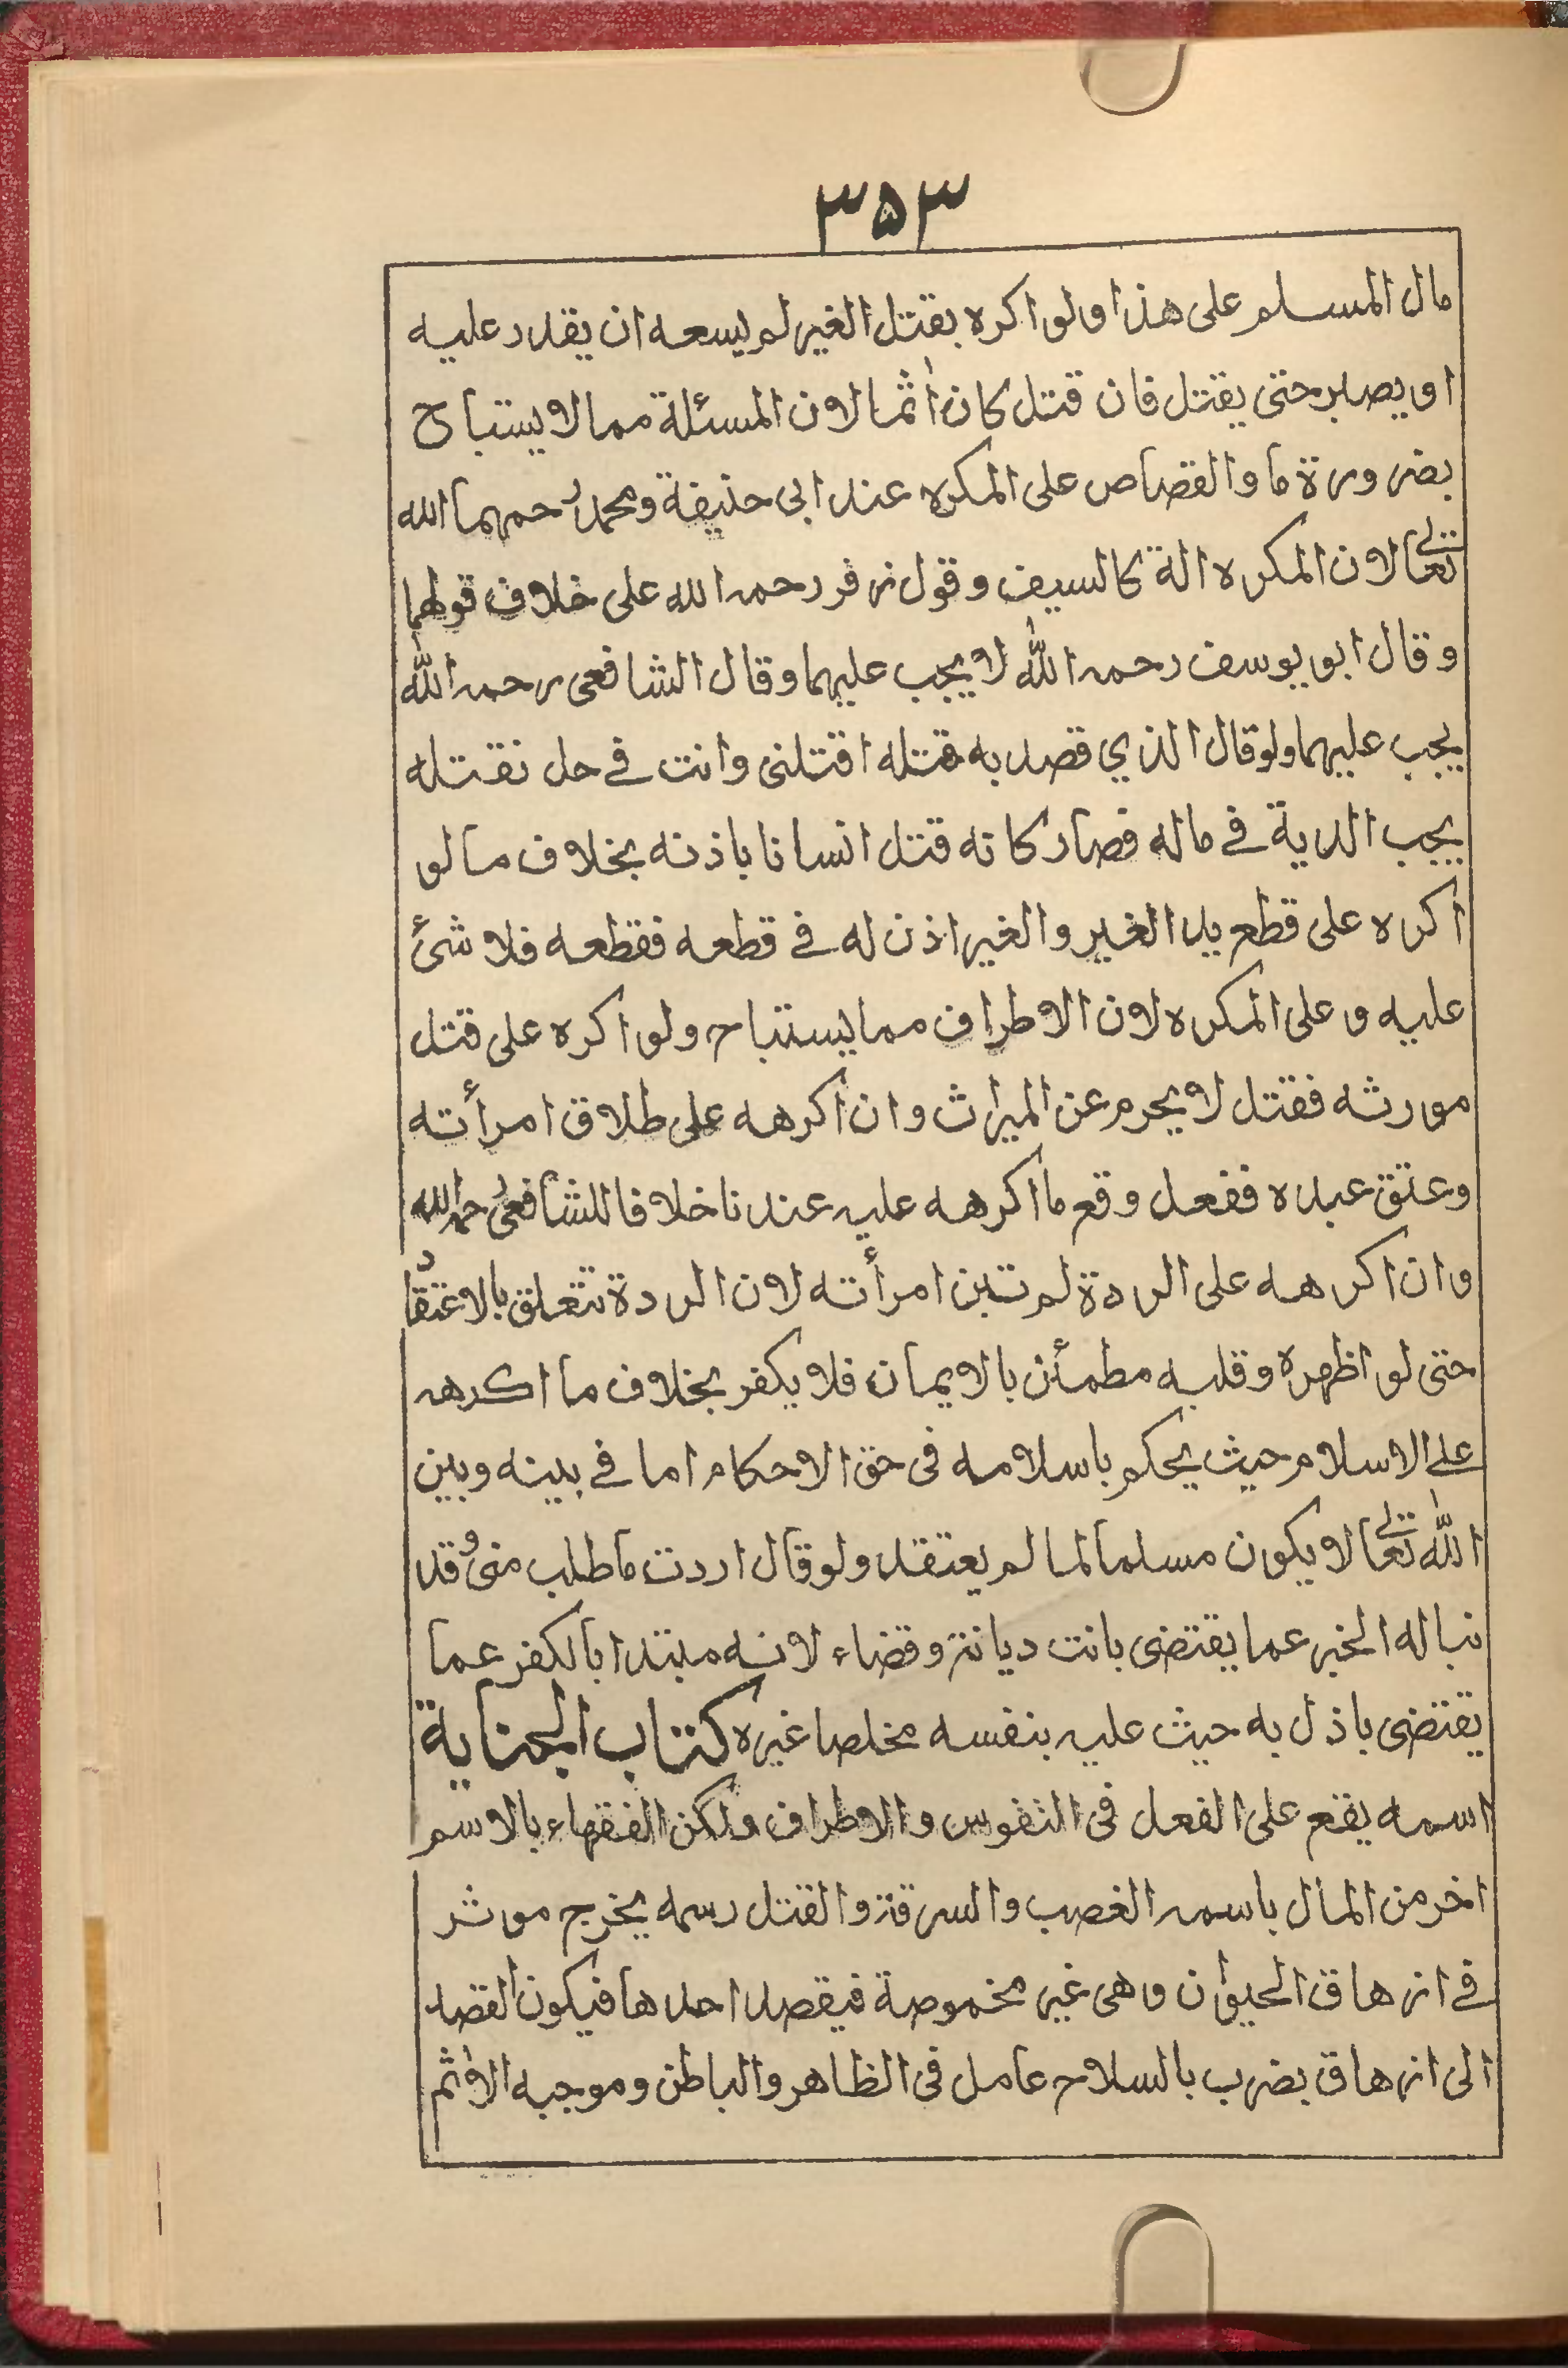 ۳۵۳
مال المسلم على هذا ولو اكره بقتل الغير لم يسعه ان يقدر عليه
او يصبر حتى يقتل فان قتل كان اٰثما لان المسئلة مما لا يستباح
بضرورة ما والقصاص على المكره عند ابى حنيفة ومحمد رحمهما الله
تعالى لان المكره الة كالسيف وقول زفر رحمه الله على خلاف قولهما
وقال ابو يوسف رحمه الله لا يجب عليهما وقال الشافعى رحمه الله
يجب عليهما ولو قال الذي قصد به قتله اقتلنى وانت في حل نقتله
يجب الدية في ماله فصار كانه قتل انسانا باذنه بخلاف ما لو
اكره على قطع يد الغير والغير اذن له في قطعه فقطعه فلا شئ
عليه و على المكره لان الاطراف مما يستباح ولو اكره على قتل
مورثه فقتل لا يحرم عن الميراث وان اكرهه على طلاق امرأته
وعتق عبده ففعل وقع ما اكرهه عليه عندنا خلافا للشافعى رحمه الله
وان اكرهه على الردة لم تبن امرأته لان الردة تتعلق بالاعتقاد
حتى لو اظهره وقلبه مطمأن بالايمان فلا يكفر بخلاف ما اكرهه
على الاسلام حيث يحكم باسلامه فى حق الاحكام اما في بينه وبين
الله تعالى لا يكون مسلما لما لم يعتقد ولو قال اردت ما طلب منى وقد
نباله الخبر عما يقتضى بانت ديانة وقضاء لانه مبتدا بالكفر عما
يقتضى باذل به حيث عليه بنفسه مخلصا غيره كتاب الجناية
اسمه يقع على الفعل فى النفوس والاطراف ولكن الفقهاء بالاسم
اخر من المال باسم الغصب والسرقة والقتل رسمه يخرج موثر
في ازهاق الحيوٰن وهى غير مخموصة فيقصد احدها فيكون القصد
الى ازهاق بضرب بالسلاح عامل فى الظاهر والباطن وموجبه الاثم